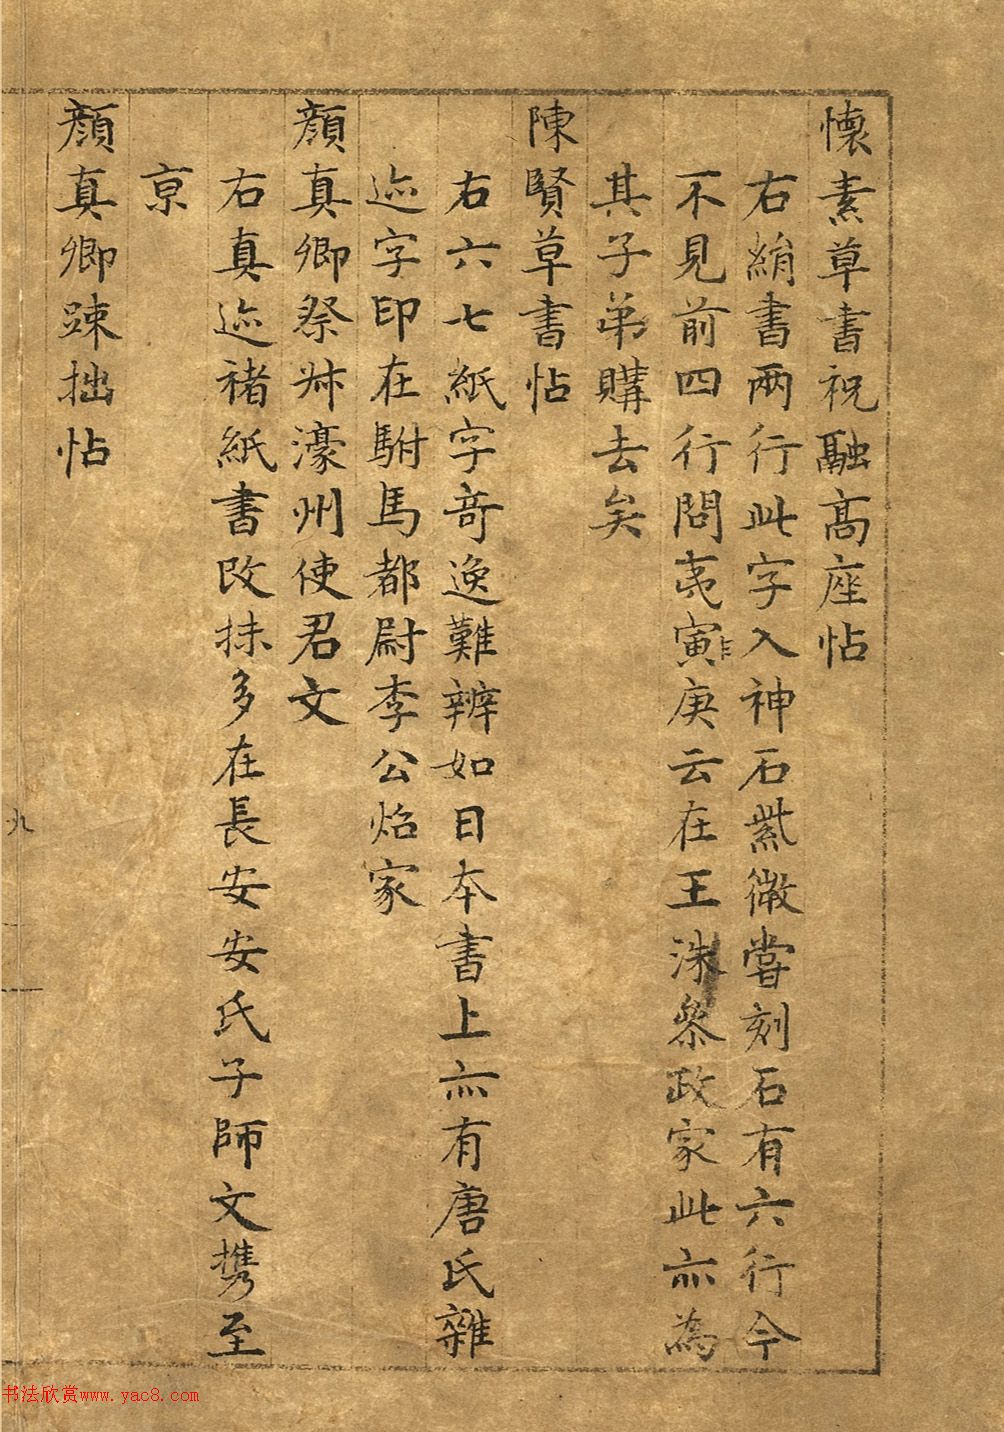 懷素草書祝融高座帖
右絹書兩行此字入神石紫微嘗刻石有六行今
不見前四行問夷寅作庚云在王洙叅政家此亦為
其子弟購去矣
陳賢草書帖
右六七紙字竒逸難辨如日本書上亦有唐氏雜
迹字印在駙馬都尉李公炤家
顏真卿祭叔濠州使君文
右真迹褚紙書改抹多在長安安氏子師文携至
京
顏真卿疎拙帖
九
书法欣赏www.yac8.com